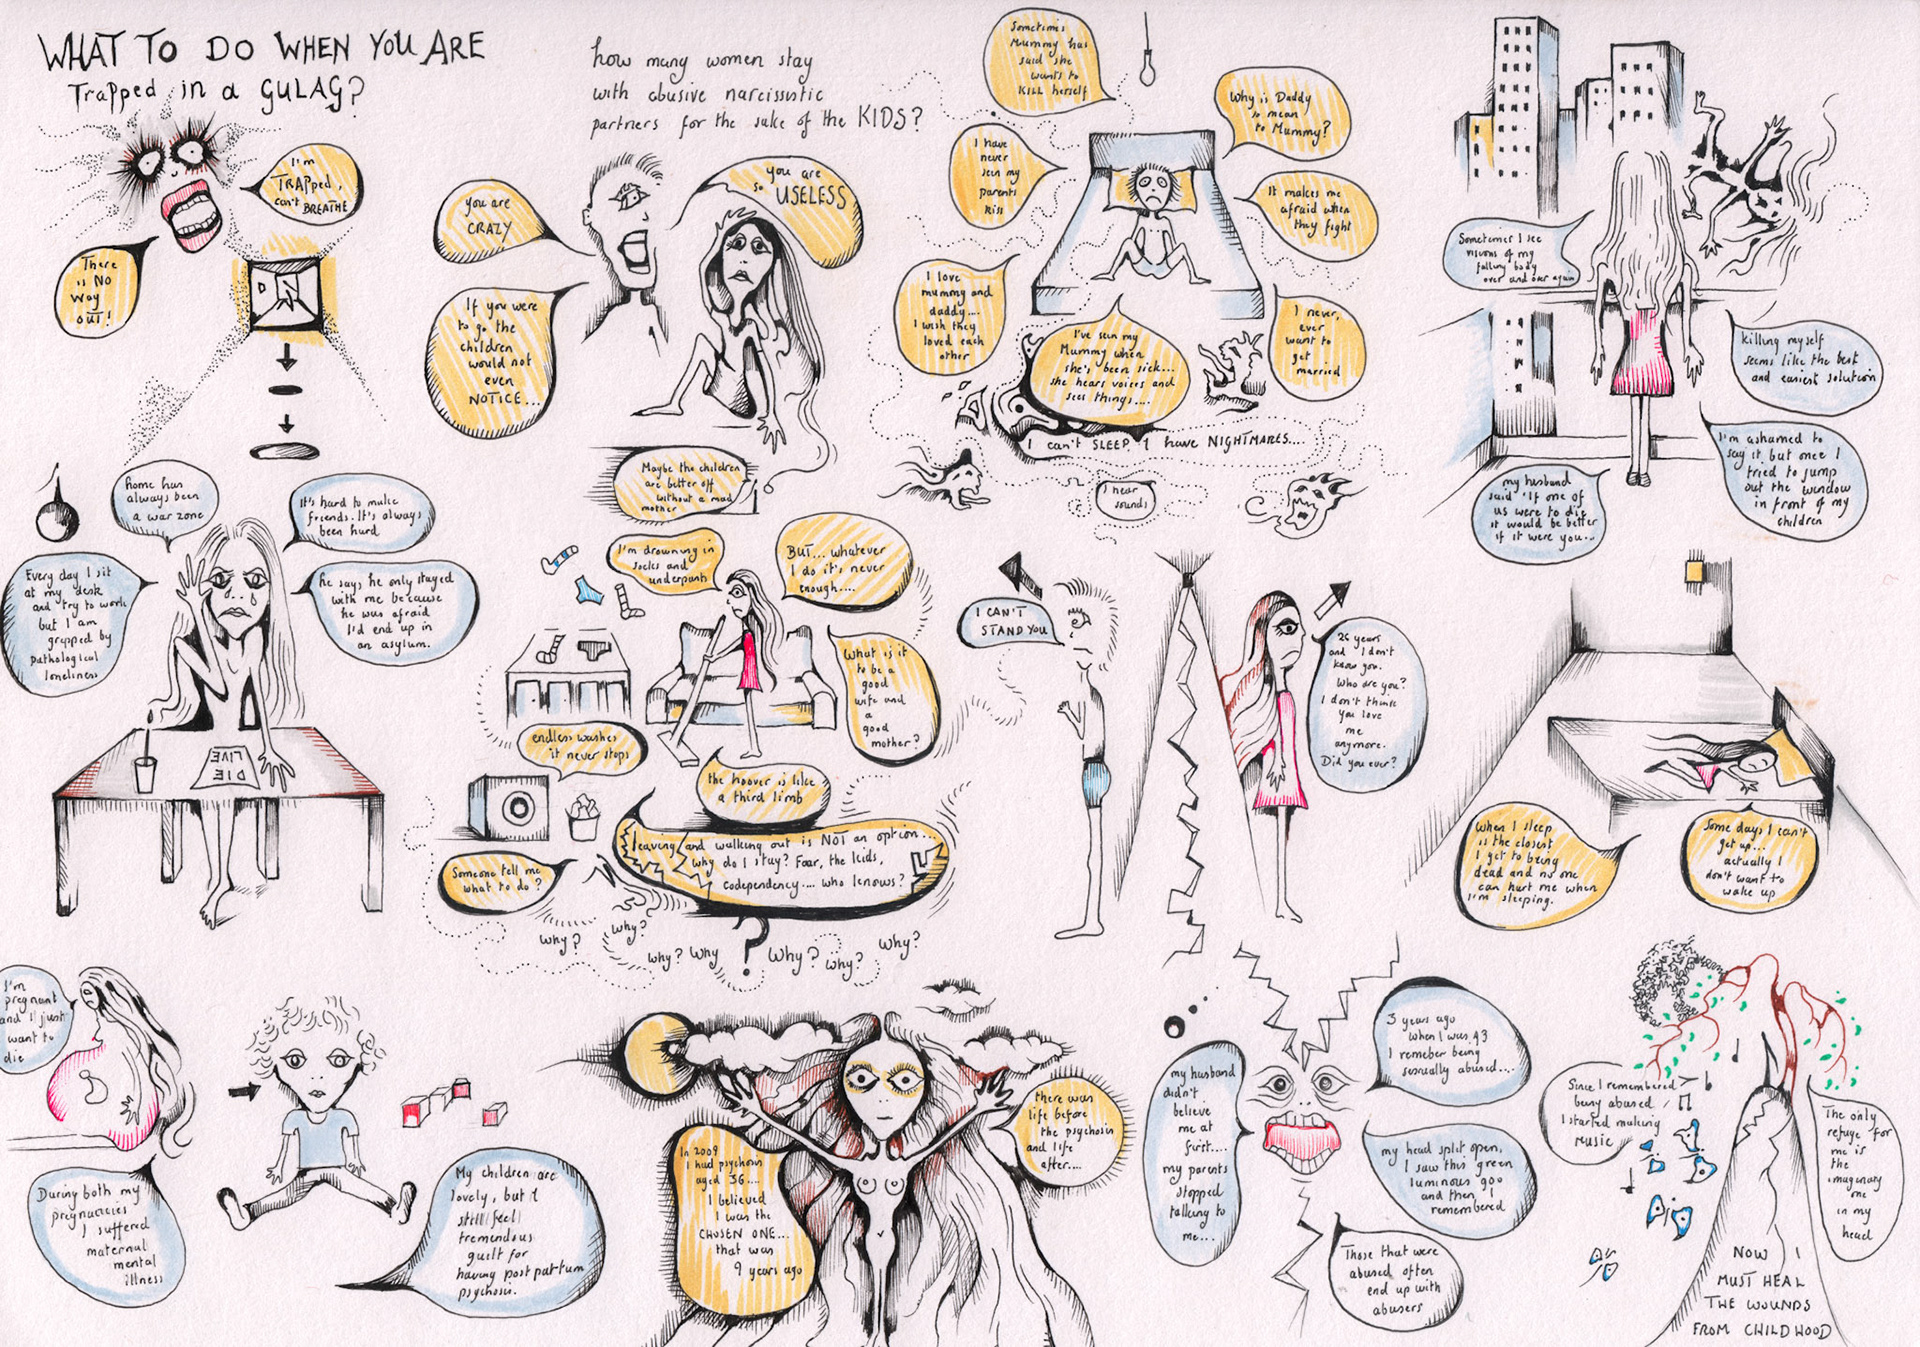 WHAT TO DO WHEN YOU ARE
Trapped in a GULAG?
I'm
TRAPPED,
can't BREATHE
There
is NO
way
OUT!
how many women stay
with abusive narcissistic
partners for the sake of the KIDS?
you are
CRAZY
you are
so USELESS
If you were
to go the
children
would not
even
NOTICE...
Maybe the children
are better off
without a mad
mother
Sometimes
Mummy has
said she
wants to
KILL herself
Why is Daddy
so mean
to Mummy?
I have
never
seen my
parents
kiss
It makes me
afraid when
they fight
I love
mummy and
daddy....
I wish they
loved each
other
I've seen my
Mummy when
she's been sick...
she hears voices and
sees things....
I never,
ever
want to
get
married
I can't SLEEP I have NIGHTMARES....
I hear
sounds
Sometimes I see
visions of my
falling body
over and over again
killing myself
seems like the best
and easiest solution
I'm ashamed to
say it, but once I
tried to jump
out the window
in front of my
children
my husband
said 'If one of
us were to die
it would be better
if it were you...
home has
always been
a war zone
It's hard to make
friends. It's always
been hard
Every day I sit
at my desk
and try to work
but I am
gripped by
pathological
loneliness
he says he only stayed
with me because
he was afraid
I'd end up in
an asylum.
DIE
LIVE
I'm drowning in
socks and
underpants
BUT... whatever
I do it's never
enough....
What is it
to be a
good
wife and
a
good
mother?
endless washes
it never stops
the hoover is like
a third limb
leaving and walking out is NOT an option...
why do I stay? Fear, the kids,
codependency.... who knows?
Someone tell me
what to do?
why? why? why? why ? why? why? why?
I CAN'T
STAND YOU
26 years
and I don't
know you.
Who are you?
I don't think
you love
me
anymore.
Did you ever?
When I sleep
is the closest
I get to being
dead and no one
can hurt me when
I'm sleeping.
Some days I can't
get up...
actually I
don't want to
wake up
I'm
pregnant
and I just
want to
die
During both my
pregnancies
I suffered
maternal
mental
illness
My children are
lovely, but I
still feel
tremendous
guilt for
having post partum
psychosis.
In 2009
I had psychosis
aged 36....
I believed
I was the
CHOSEN ONE...
that was
9 years ago
there was
life before
the psychosis
and life
after....
my husband
didn't
believe
me at
first....
my parents
stopped
talking to
me...
3 years ago
when I was 43
I remeber being
sexually abused....
my head split open,
I saw this green
luminous goo
and then I
remembered
Those that were
abused often
end up with
abusers
Since I remembered
being abused
I started making
MUSIC
The only
refuge for
me is
the
imaginary
one
in my
head
NOW I
MUST HEAL
THE WOUNDS
FROM CHILDHOOD